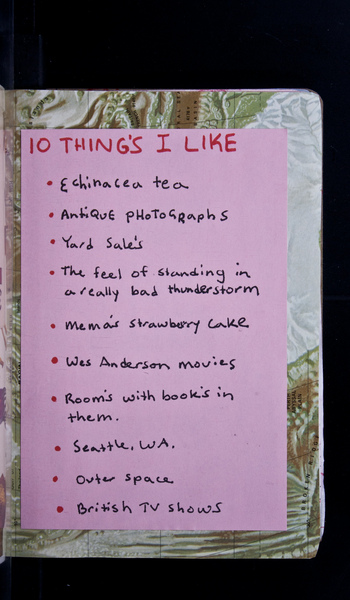 10 THING'S I LIKE
• Echinacea tea
• ANTiQUE PHOTOGRAPHS
• Yard Sale's
• The feel of standing in
a really bad thunderstorm
• Mema's strawberry cake
• Wes Anderson movies
• Room's with book's in
them.
• Seattle, WA.
• Outer space
• British TV shows